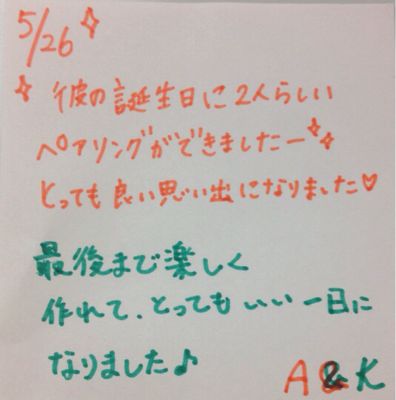 5/26✧
✧ 彼の誕生日に2人らしい
ペアリングができましたー✧✧
とっても良い思い出になりました♡
最後まで楽しく
作れて、とってもいい一日に
なりました♪
A&K